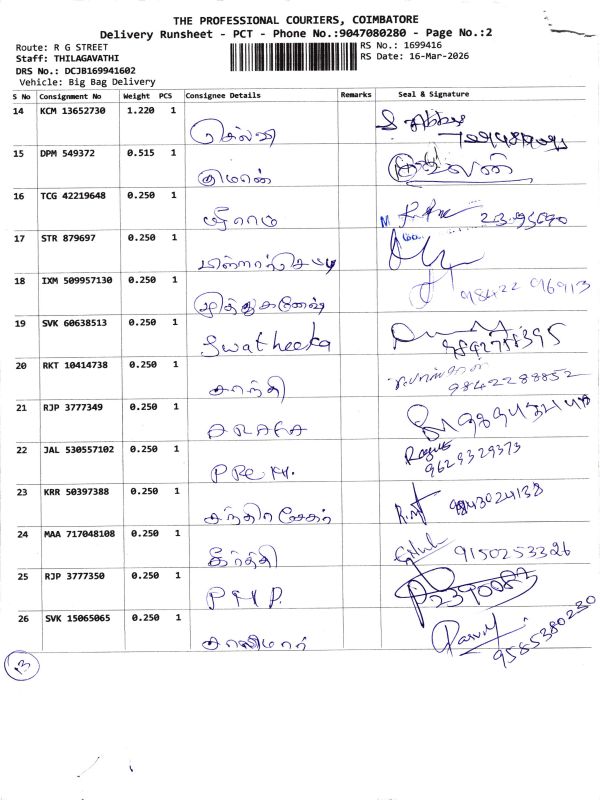 THE PROFESSIONAL COURIERS, COIMBATORE
Delivery Runsheet - PCT - Phone No.:9047080280 - Page No.:2
Route: R G STREET
RS No.: 1699416
Staff: THILAGAVATHI
RS Date: 16-Mar-2026
DRS No.: DCJB169941602
Vehicle: Big Bag Delivery
S No Consignment No Weight PCS Consignee Details Remarks Seal & Signature
14 KCM 13652730 1.220 1 செல்வி
15 DPM 549372 0.515 1 குமரன்
16 TCG 42219648 0.250 1 ஸ்ரீராம்
17 STR 879697 0.250 1
18 IXM 509957130 0.250 1 ஜித்துகணேஷ் 98422 96913
19 SVK 60638513 0.250 1 Swatheeka
20 RKT 10414738 0.250 1 சாந்தி 9842288852
21 RJP 3777349 0.250 1
22 JAL 530557102 0.250 1 9629329373
23 KRR 50397388 0.250 1 சந்திரசேகர் 9843024138
24 MAA 717048108 0.250 1 கீர்த்தி 9150253326
25 RJP 3777350 0.250 1 P.M.P. 2390083
26 SVK 15065065 0.250 1 சாலிமார் 9585380230
13